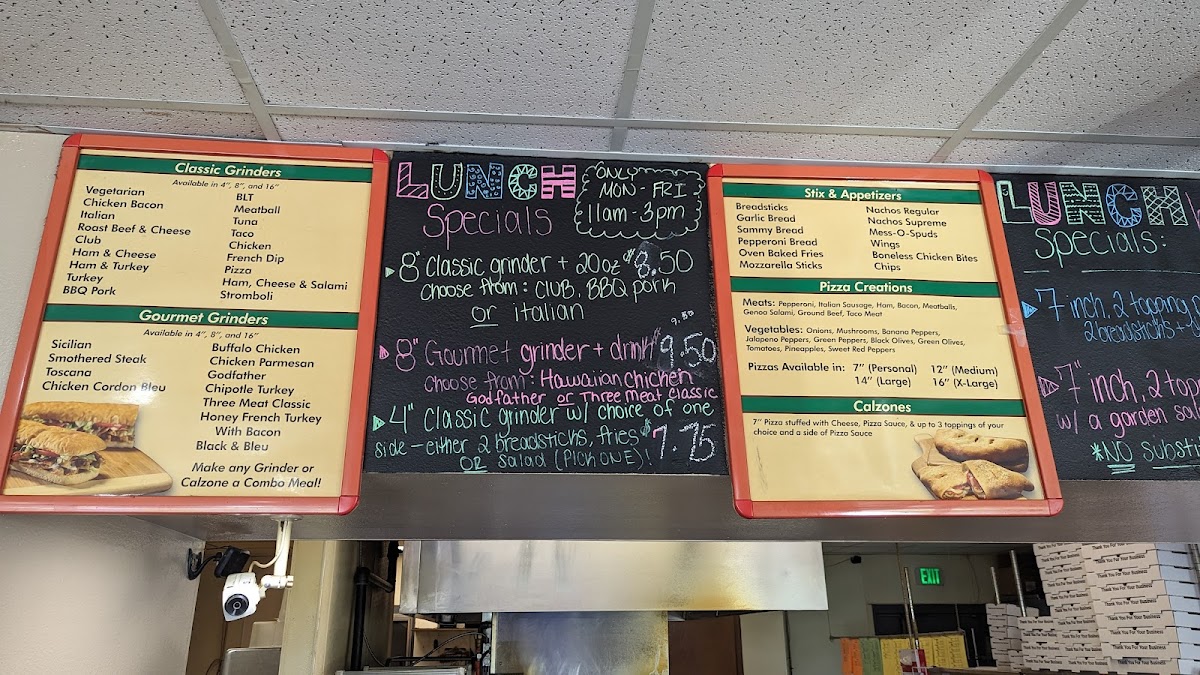 Classic Grinders
Available in 4", 8", and 16"
Vegetarian
Chicken Bacon
Italian
Roast Beef & Cheese
Club
Ham & Cheese
Ham & Turkey
Turkey
BBQ Pork
BLT
Meatball
Tuna
Taco
Chicken
French Dip
Pizza
Ham, Cheese & Salami
Stromboli
Gourmet Grinders
Available in 4", 8", and 16"
Sicilian
Smothered Steak
Toscana
Chicken Cordon Bleu
Buffalo Chicken
Chicken Parmesan
Godfather
Chipotle Turkey
Three Meat Classic
Honey French Turkey
With Bacon
Black & Bleu
Make any Grinder or
Calzone a Combo Meal!
LUNCH
Specials
ONLY
MON - FRI
11am - 3pm
8" Classic grinder + 20oz $8.50
choose from: CLUB, BBQ pork
or italian
9.50
8" Gourmet grinder + drink $9.50
choose from: Hawaiian chicken
Godfather or Three Meat Classic
4" Classic grinder w/ choice of one
side - either 2 breadsticks, fries $7.75
OR salad (PICK ONE)!
Stix & Appetizers
Breadsticks
Garlic Bread
Sammy Bread
Pepperoni Bread
Oven Baked Fries
Mozzarella Sticks
Nachos Regular
Nachos Supreme
Mess-O-Spuds
Wings
Boneless Chicken Bites
Chips
Pizza Creations
Meats: Pepperoni, Italian Sausage, Ham, Bacon, Meatballs,
Genoa Salami, Ground Beef, Taco Meat
Vegetables: Onions, Mushrooms, Banana Peppers,
Jalapeno Peppers, Green Peppers, Black Olives, Green Olives,
Tomatoes, Pineapples, Sweet Red Peppers
Pizzas Available in: 7" (Personal) 12" (Medium)
14" (Large) 16" (X-Large)
Calzones
7" Pizza stuffed with Cheese, Pizza Sauce, & up to 3 toppings of your
choice and a side of Pizza Sauce
LUNCH
Specials:
7 inch, 2 topping
2 breadsticks +
7" inch, 2 top
w/ a garden sa
*NO substit
EXIT
Thank You For Your Business